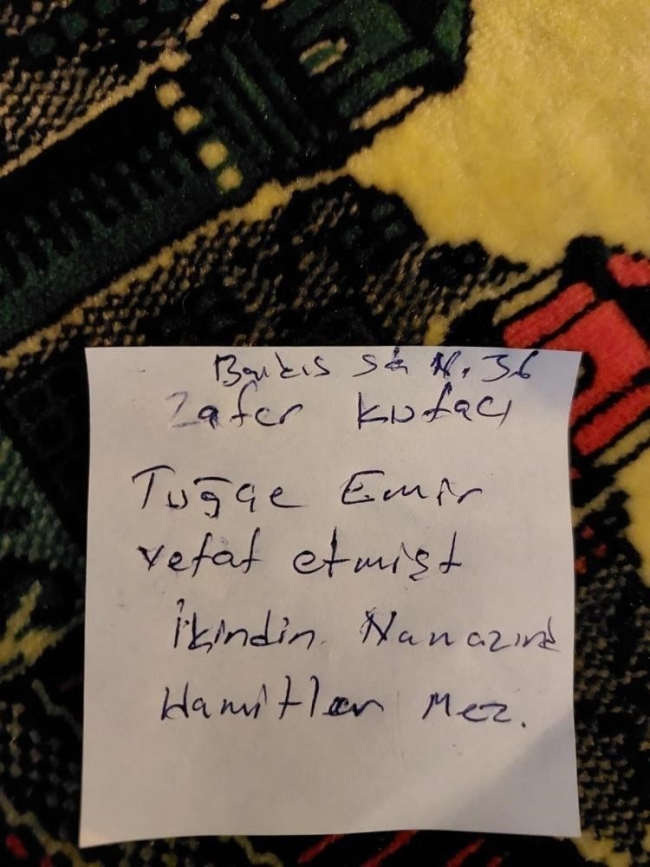 sk N. 36
Zafer
Tuğçe Emir
vefat etmişt
İkindin Namazınd
Hamitler Mez.